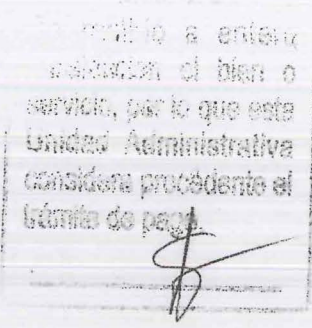 recibió a entera
satisfacción el bien o
servicio, por lo que esta
Unidad Administrativa
considera procedente el
trámite de pago